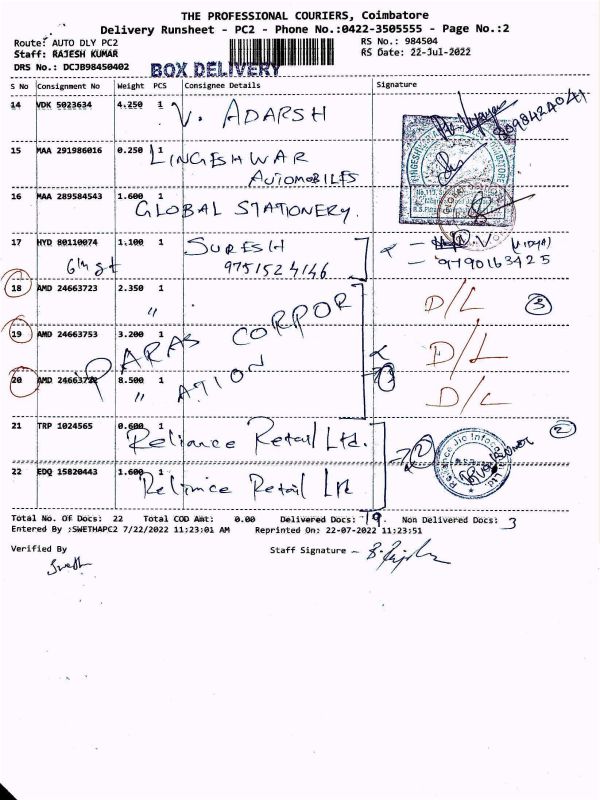 THE PROFESSIONAL COURIERS, Coimbatore
Delivery Runsheet - PC2 - Phone No.:0422-3505555 - Page No.:2
Route: AUTO DLY PC2 RS No.: 984504
Staff: RAJESH KUMAR RS Date: 22-Jul-2022
DRS No.: DCJB98450402 BOX DELIVERY
S No Consignment No Weight PCS Consignee Details Signature
14 VDK 5023634 4.250 1 V. ADARSH
15 MAA 291986016 0.250 1 LINGESHWAR
AUTOMOBILES
16 MAA 289584543 1.600 1
GLOBAL STATIONERY.
17 HYD 80110074 1.100 1 SURESH
6th st 9751524146 9790163425
18 AMD 24663723 2.350 1 " D/L 3
19 AMD 24663753 3.200 1 PARAS CORPOR D/L
20 8.500 1 " ATION D/L
21 TRP 1024565 0.600 1 Reliance Retail Ltd. 2
22 EDQ 15820443 1.600 Reliance Retail Ltd
Total No. Of Docs: 22 Total COD Amt: 0.00 Delivered Docs: 19. Non Delivered Docs: 3
Entered By :SWETHAPC2 7/22/2022 11:23:01 AM Reprinted On: 22-07-2022 11:23:51
Verified By Staff Signature -